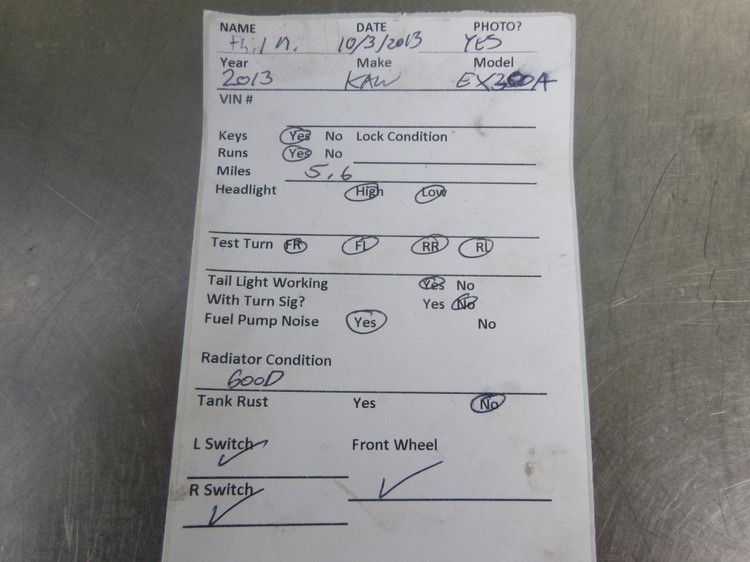 NAME DATE PHOTO?
10/3/2013 YES
Year Make Model
2013 KAW
VIN #
Keys Yes No Lock Condition
Runs Yes No
Miles 5,6
Headlight High Low
Test Turn FR FL RR RL
Tail Light Working Yes No
With Turn Sig? Yes No
Fuel Pump Noise Yes No
Radiator Condition
GOOD
Tank Rust Yes No
L Switch Front Wheel
R Switch